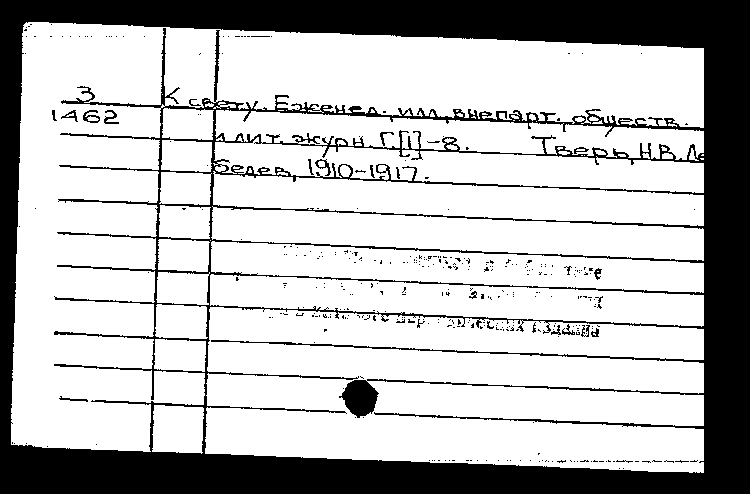 3
1462
К свету. Еженед. илл., внепарт., обществ.
и лит. журн. Г.[1]-8. Тверь, Н.В. Ле
бедев, 1910-1917.
в каталоге периодических издания